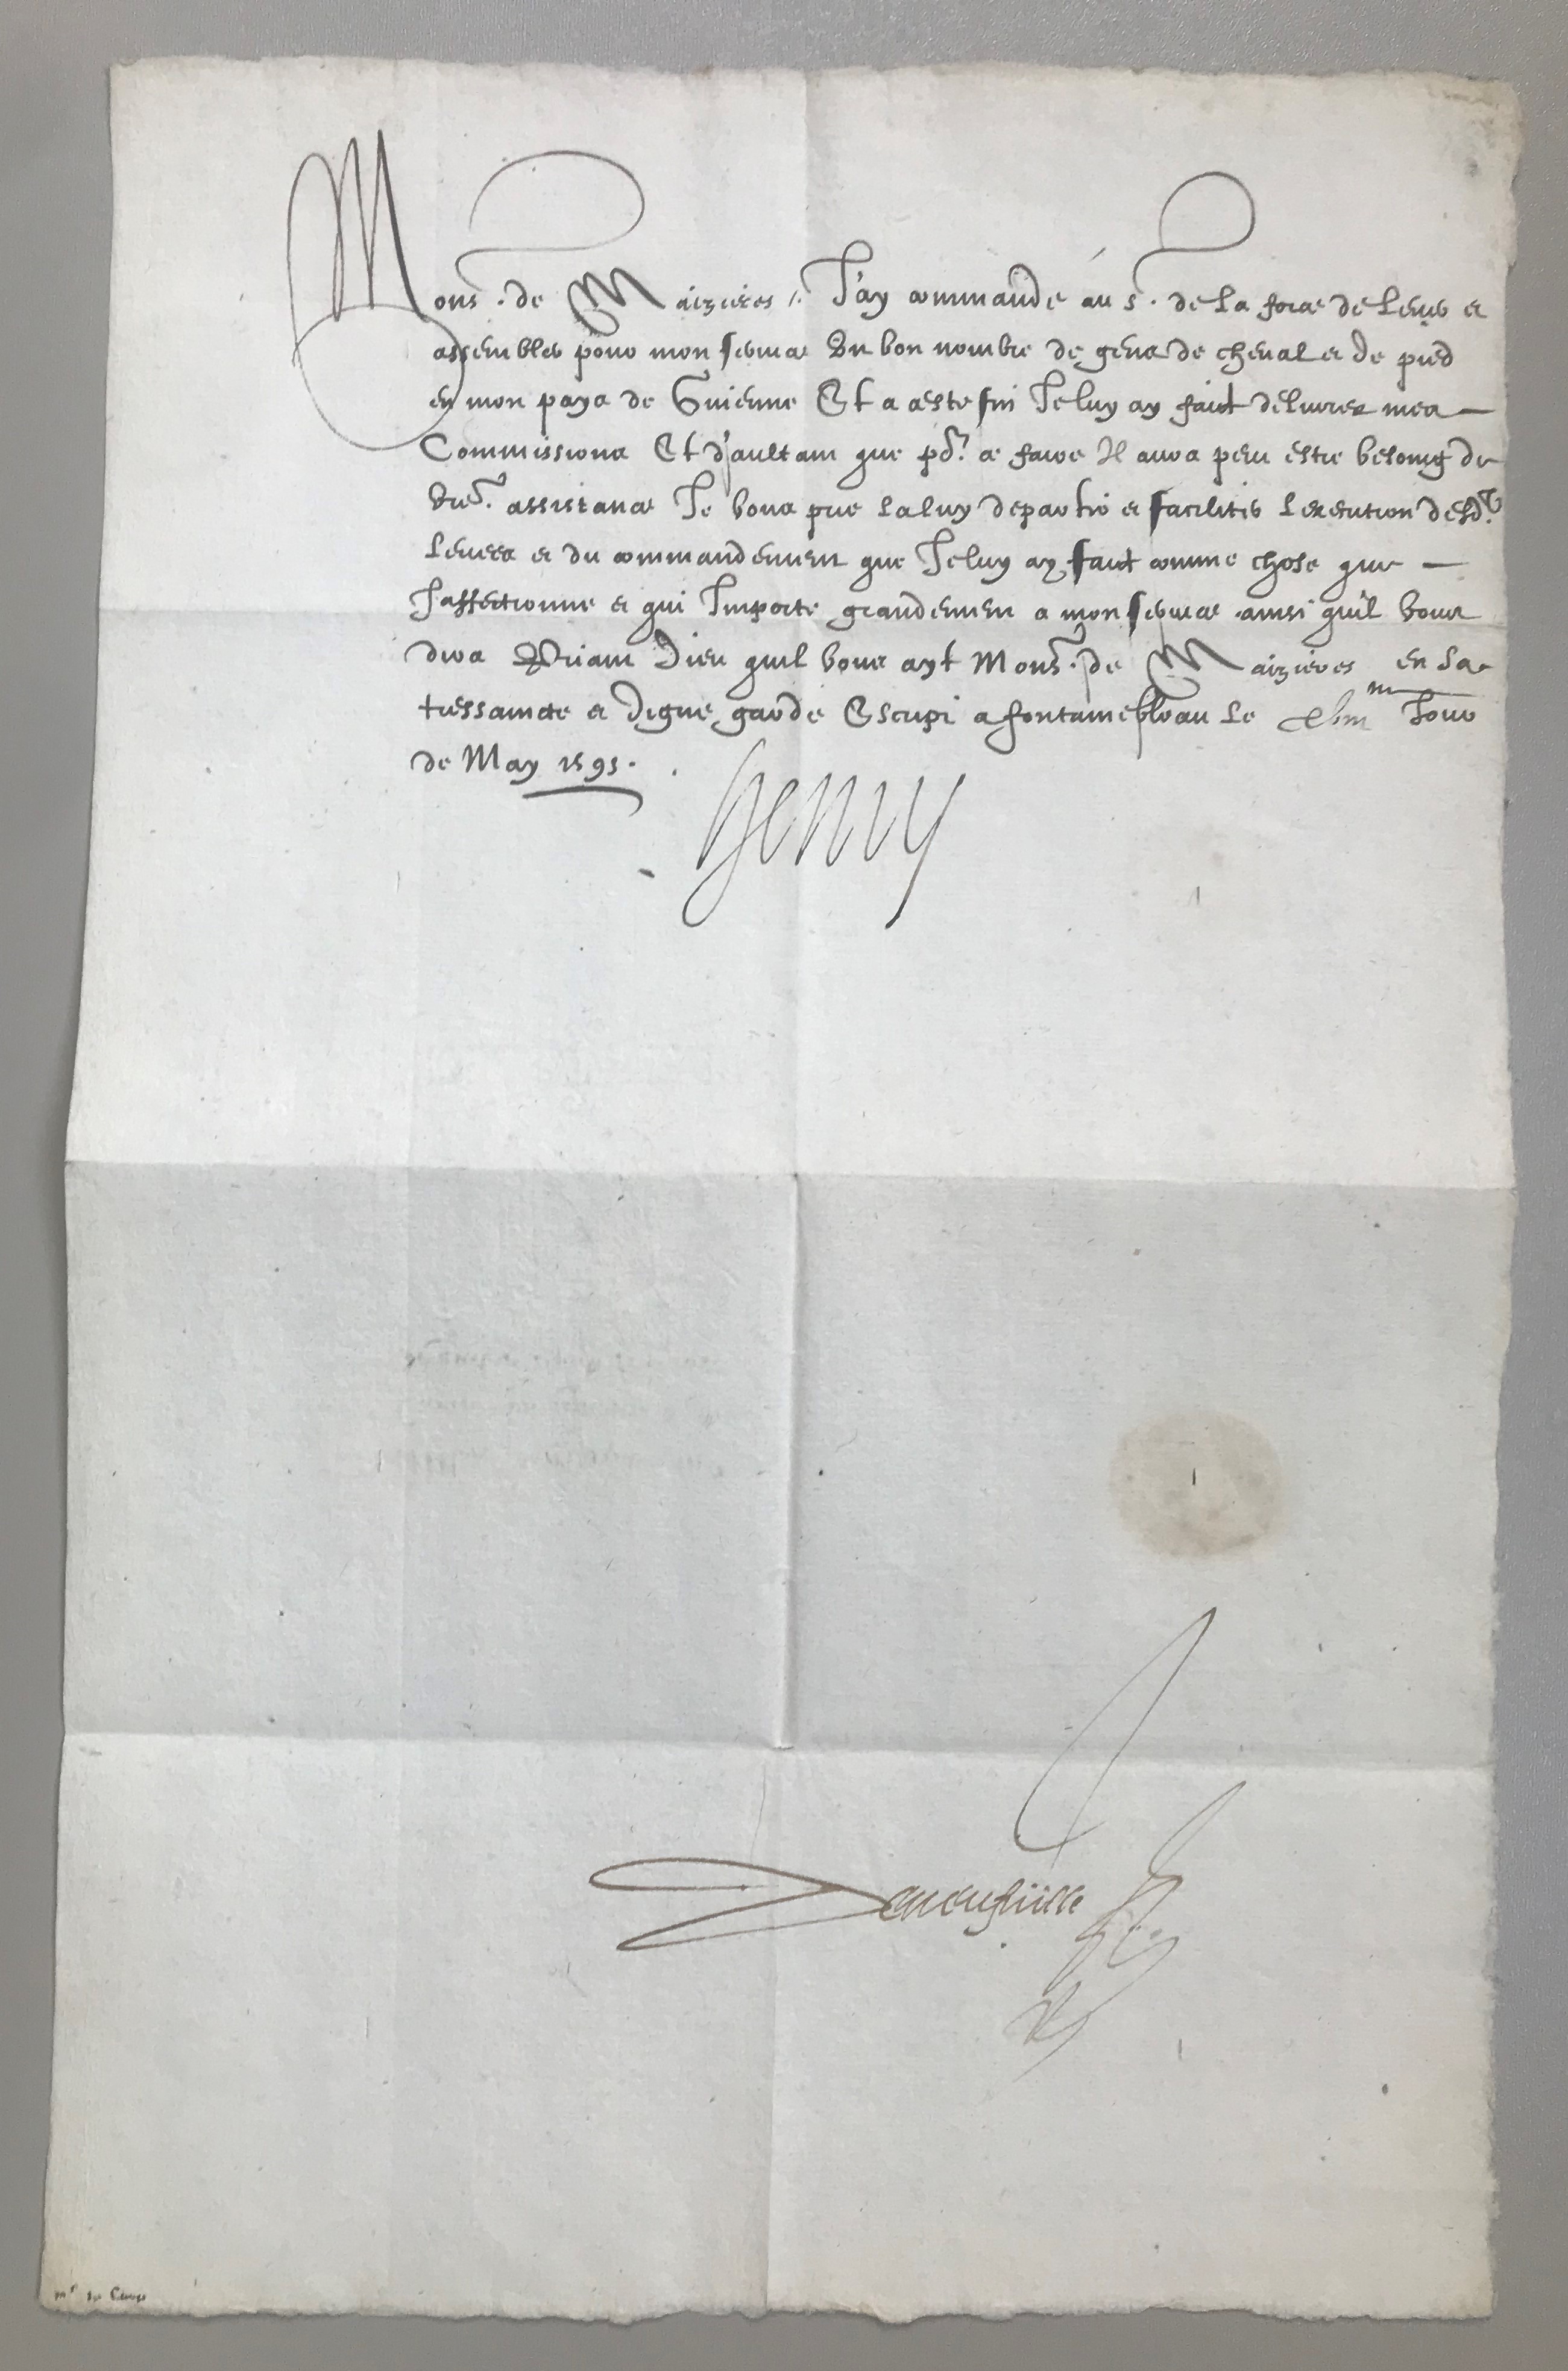 Mons.r de Maizieres, J'ay commandé au s.r de la force de lever et
assembler pour mon service Un bon nombre de gens de cheval et de pied
en mon pays de Guienne Et a ceste fin Je luy ay faict delivrer mes
Commissions Et d'aultant que po.r ce faire Il aura peu estre besoing de
v.re assistance Je vous prie la luy departir et faciliter l'execution desd.
levees et du commandement que Je luy ay faict comme chose que
J'affectionne et qui Importe grandement a mon service ainsi qu'il vous
dira Priant Dieu qu'il vous ayt Mons.r de Maizieres en sa
tressaincte et digne garde Escript a fontainebleau le me Jour
de May 1595.
Henry
Deneufville